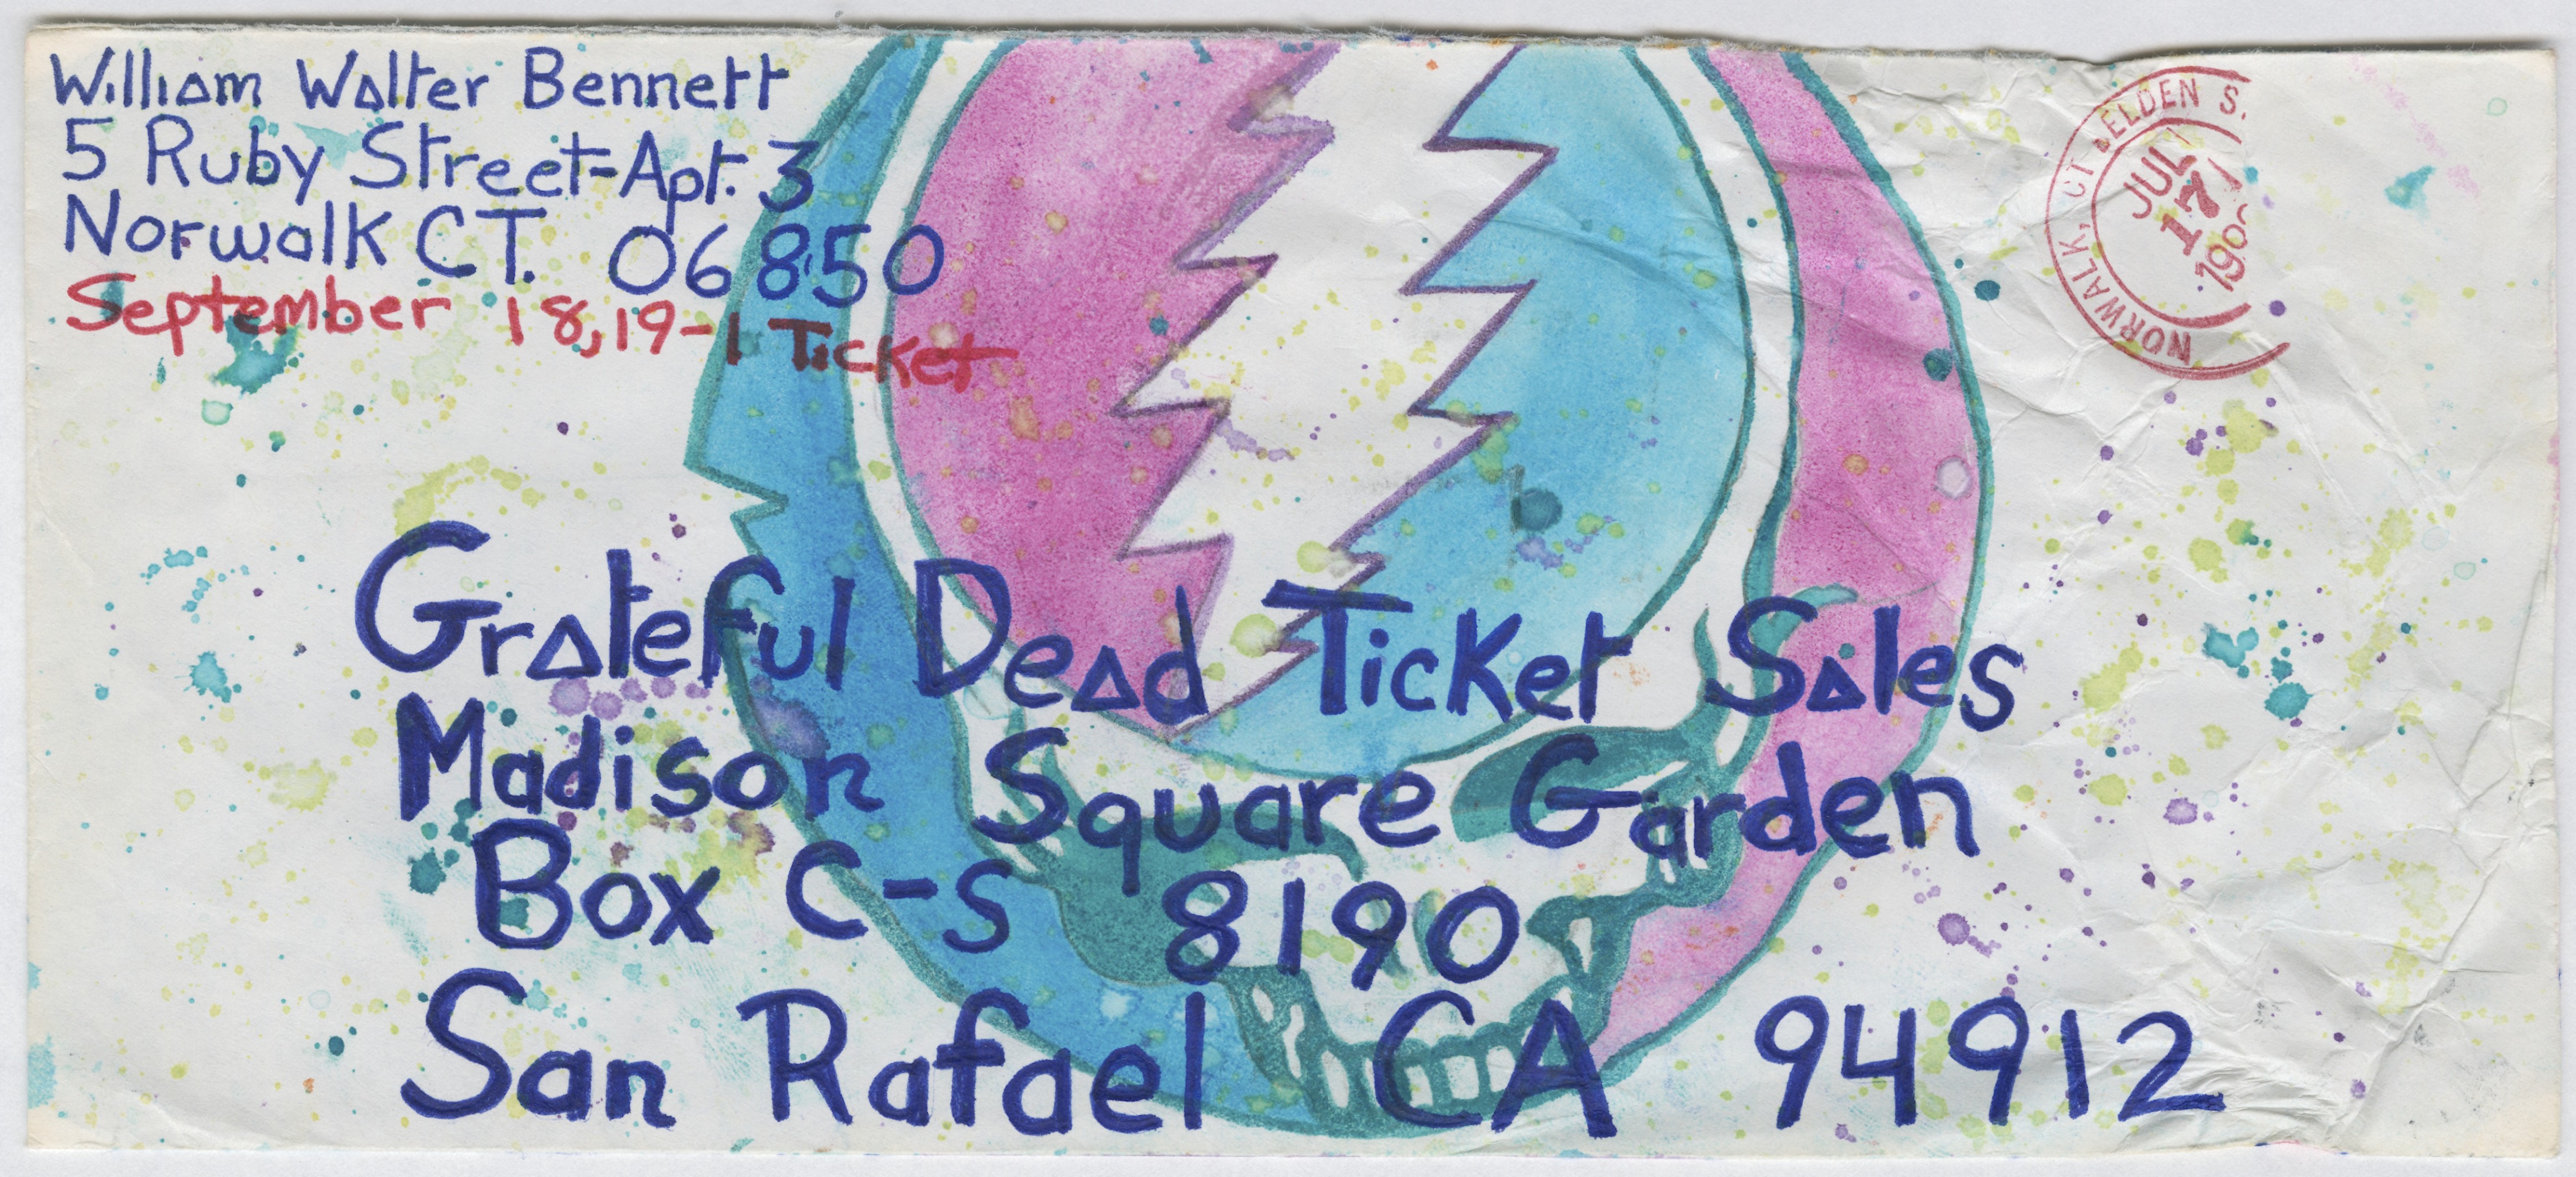 William Walter Bennett
5 Ruby Street-Apt. 3
Norwalk CT. 06850
September 18,19-1 Ticket
NORWALK, CT BELDEN S.
JUL
17
Grateful Dead Ticket Sales
Madison Square Garden
Box C-S 8190
San Rafael CA 94912